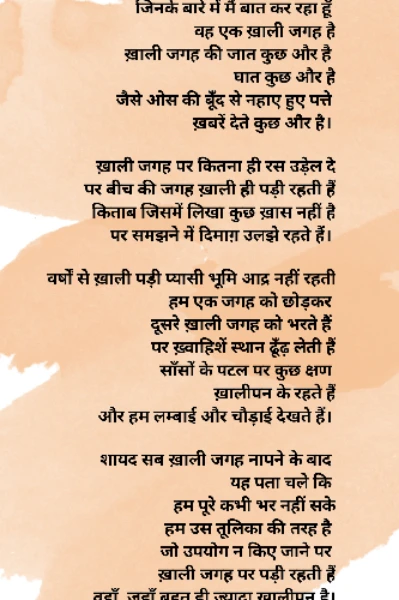 जिनके बारे में मैं बात कर रहा हूँ
वह एक ख़ाली जगह है
ख़ाली जगह की जात कुछ और है
घात कुछ और है
जैसे ओस की बूँद से नहाए हुए पत्ते
ख़बरें देते कुछ और है।
ख़ाली जगह पर कितना ही रस उड़ेल दे
पर बीच की जगह ख़ाली ही पड़ी रहती हैं
किताब जिसमें लिखा कुछ ख़ास नहीं है
पर समझने में दिमाग़ उलझे रहते हैं।
वर्षों से ख़ाली पड़ी प्यासी भूमि आद्र नहीं रहती
हम एक जगह को छोड़कर
दूसरे ख़ाली जगह को भरते हैं
पर ख़्वाहिशें स्थान ढूँढ़ लेती हैं
साँसों के पटल पर कुछ क्षण
ख़ालीपन के रहते हैं
और हम लम्बाई और चौड़ाई देखते हैं।
शायद सब ख़ाली जगह नापने के बाद
यह पता चले कि
हम पूरे कभी भर नहीं सके
हम उस तूलिका की तरह है
जो उपयोग न किए जाने पर
ख़ाली जगह पर पड़ी रहती हैं
वहाँ, जहाँ बहुत ही ज़्यादा ख़ालीपन है।